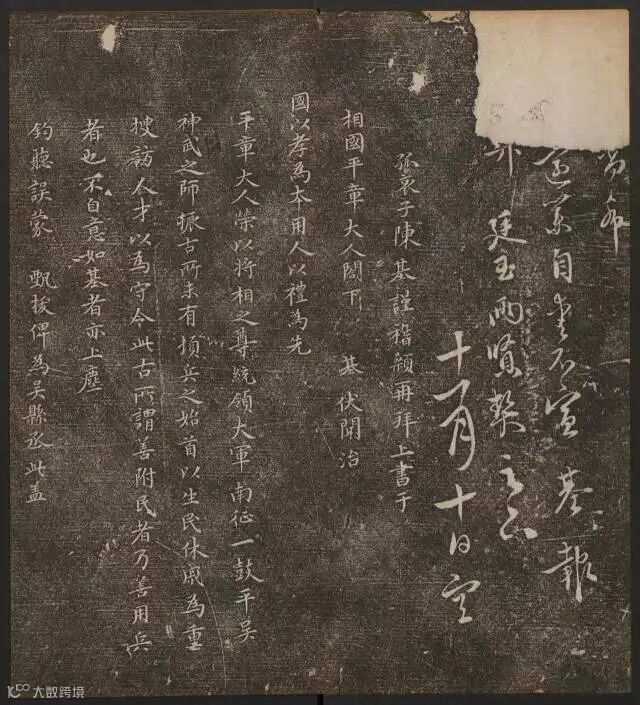 尚希
自重不宣 基報
廷玉兩賢契
十一月十日
孤哀子陳基謹稽顙再拜上書于
相國平章大人閤下 基伏聞治
國以孝為本用人以禮為先
平章大人榮以將相之尊統領大軍南征一鼓平吳
神武之師振古所未有頓兵之始首以生民休戚為重
搜訪人才以為守令此古所謂善附民者乃善用兵
者也不自意如基者亦上塵
鈞聽誤蒙 甄拔俾為吳縣丞此蓋
大数跨境